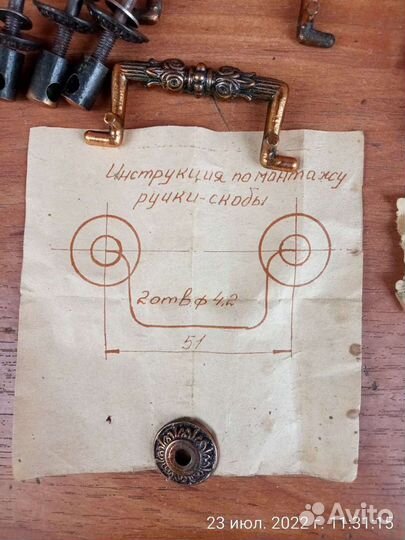 Инструкция по мантажу
ручки-скобы
2 отв ф 4,2
51
23 июл. 2022 г. 11:31:15
Avito